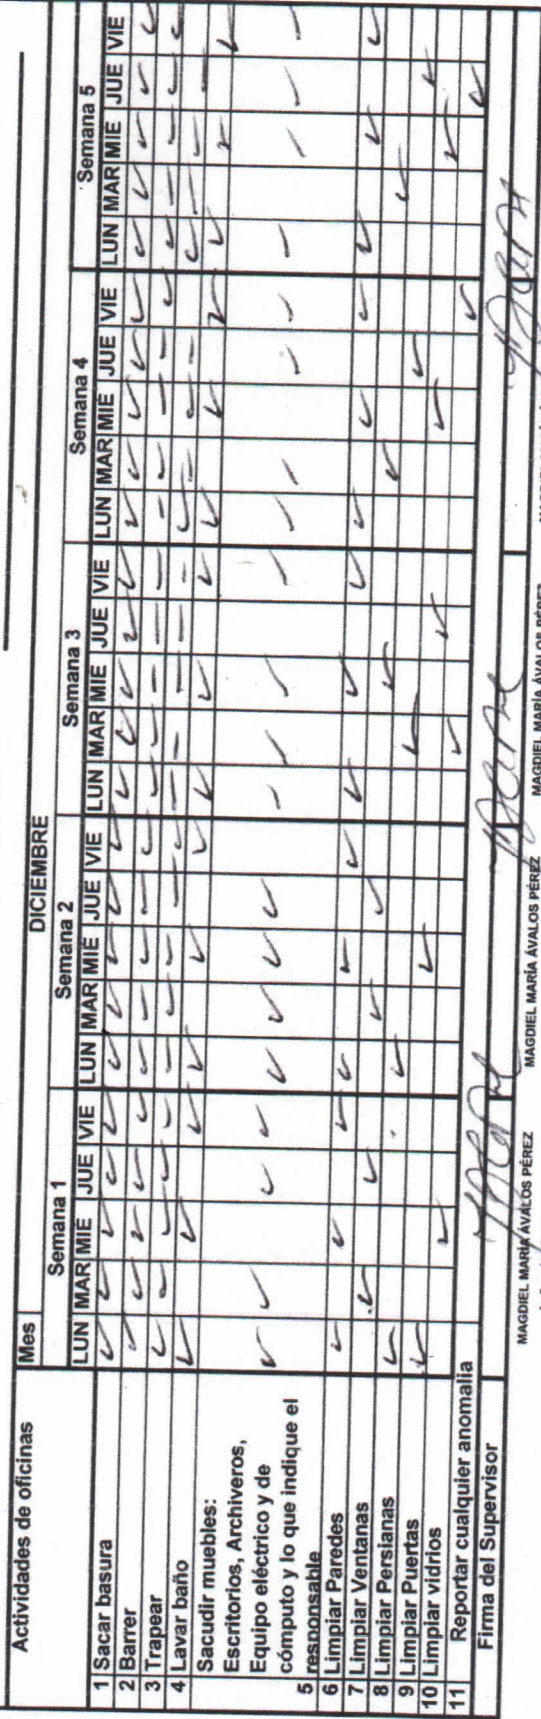 Actividades de oficinas
Mes
DICIEMBRE
Semana 1 Semana 2 Semana 3 Semana 4 Semana 5
LUN MAR MIE JUE VIE LUN MAR MIE JUE VIE LUN MAR MIE JUE VIE LUN MAR MIE JUE VIE LUN MAR MIE JUE VIE
1 Sacar basura
2 Barrer
3 Trapear
4 Lavar baño
Sacudir muebles:
Escritorios, Archiveros,
Equipo eléctrico y de
cómputo y lo que indique el
5 responsable
6 Limpiar Paredes
7 Limpiar Ventanas
8 Limpiar Persianas
9 Limpiar Puertas
10 Limpiar vidrios
11 Reportar cualquier anomalia
Firma del Supervisor
MAGDIEL MARÍA ÁVALOS PÉREZ MAGDIEL MARÍA ÁVALOS PÉREZ MAGDIEL MARÍA ÁVALOS PÉREZ